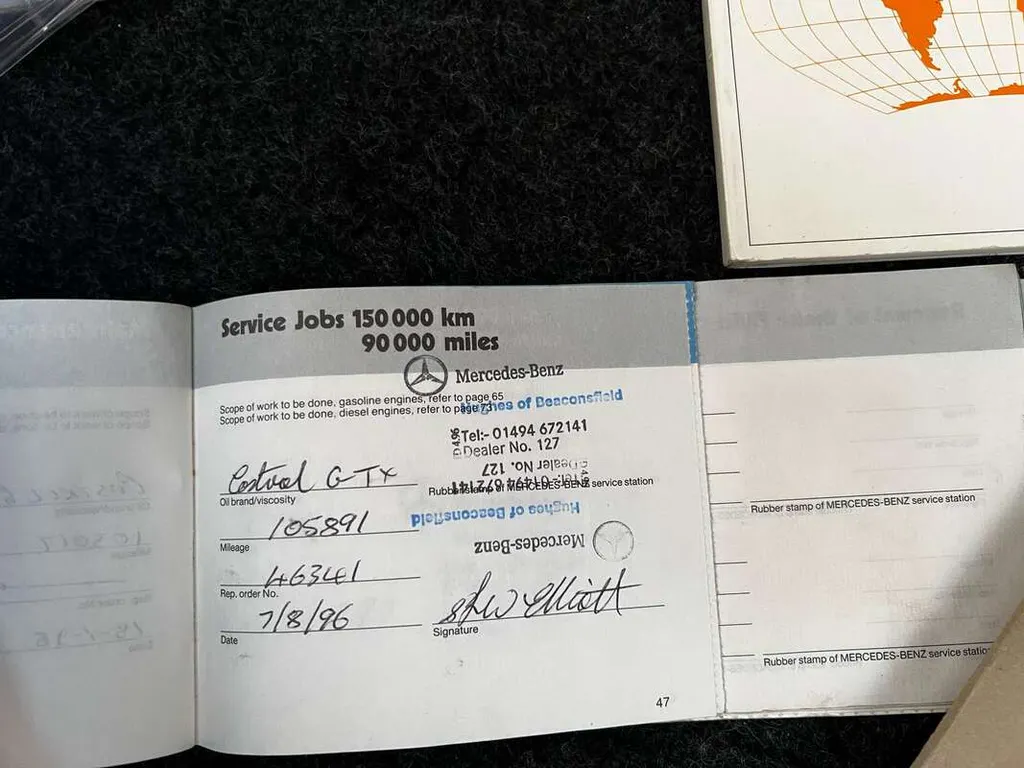 Service Jobs 150 000 km
90 000 miles
Mercedes-Benz
Scope of work to be done, gasoline engines, refer to page 65
Scope of work to be done, diesel engines, refer to page 73
Hughes of Beaconsfield
Tel:- 01494 672141
Dealer No. 127
Castrol GTX
Oil brand/viscosity
Dealer No. 127
Tel:- 01494 672141
Rubber stamp of MERCEDES-BENZ service station
Hughes of Beaconsfield
105891
Mileage
Mercedes-Benz
46341
Rep. order No.
7/8/96
Date
Elliott
Signature
47
Rubber stamp of MERCEDES-BENZ service station
Rubber stamp of MERCEDES-BENZ service station